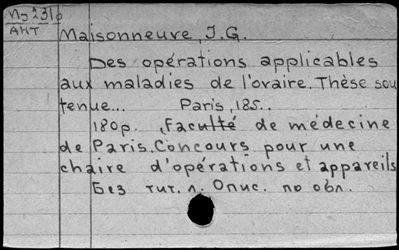 Nj231б
АНТ
Maisonneuve, J.G.
Des opérations applicables
aux maladies de l'ovaire. Thèse sou
tenue... Paris, 185..
180p. ,Faculté de médecine
de Paris. Concours pour une
chaire d'opérations et appareils
Без тит. л. Опис. по обл.